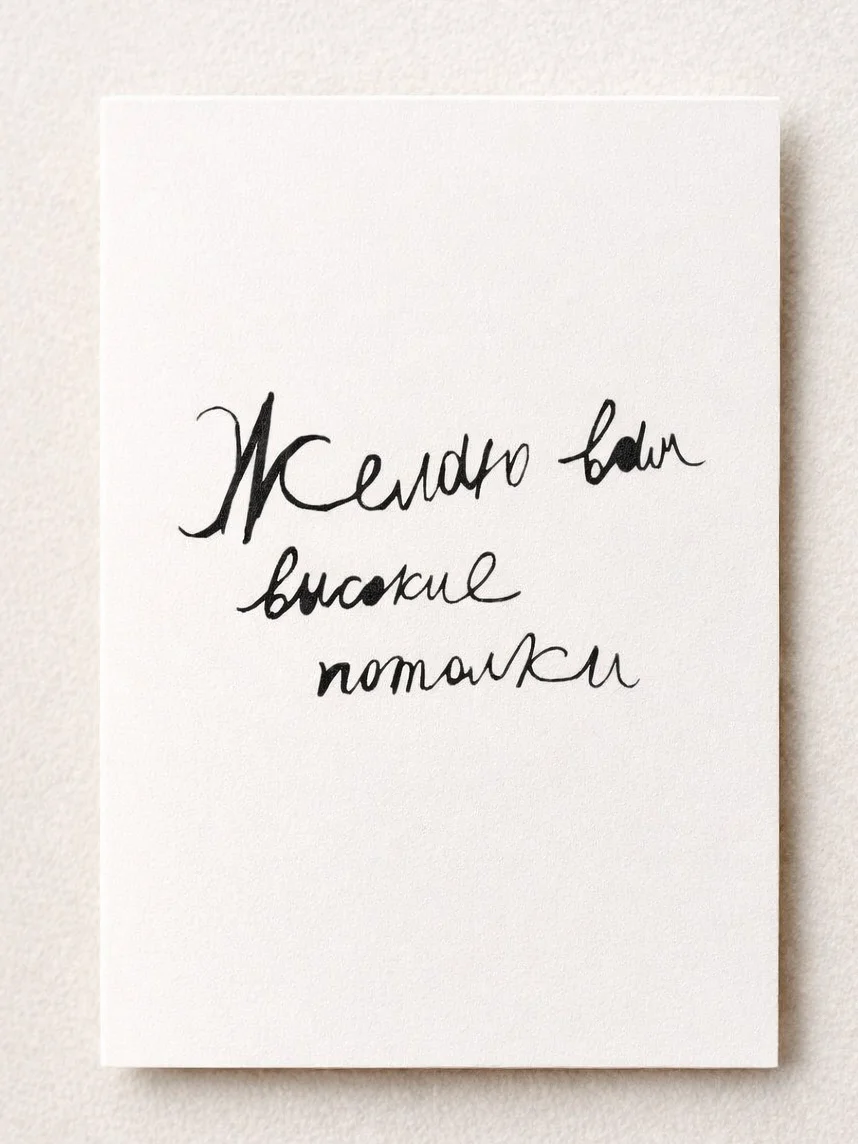 Желаю вам
високие
потолки